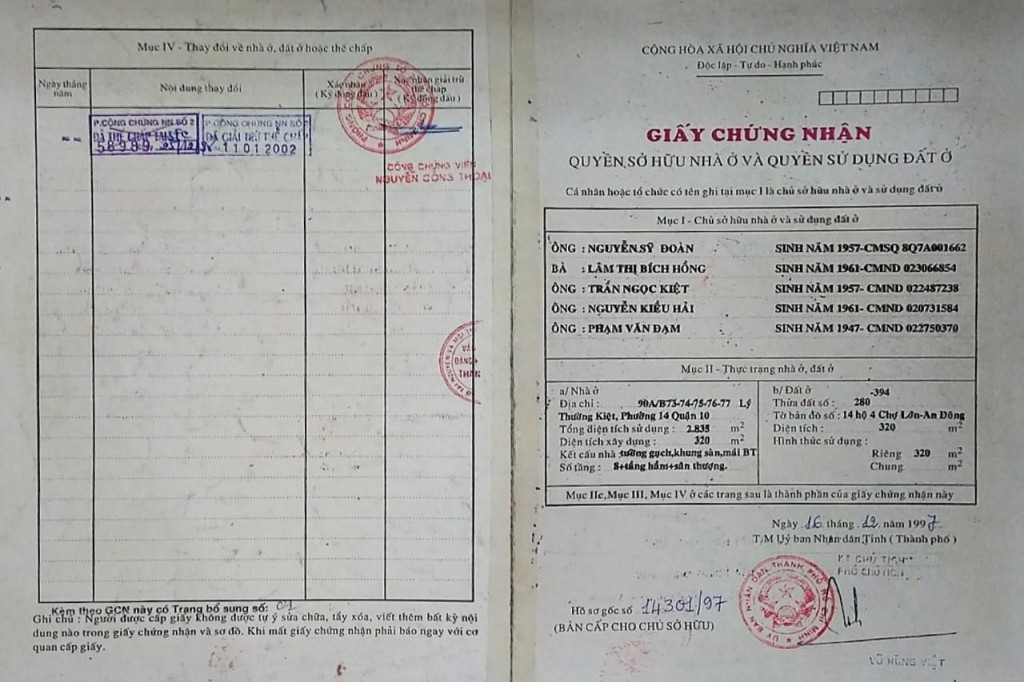 Mục IV - Thay đổi về nhà ở, đất ở hoặc thế chấp
Ngày tháng năm
Nội dung thay đổi
Xác nhận (Ký đóng dấu)
Xác nhận giải trừ thế chấp (Ký đóng dấu)
P.CÔNG CHỨNG NN.SỐ 2
ĐÃ THẾ CHẤP TẠI
58989
P.CÔNG CHỨNG NN SỐ
ĐÃ GIẢI TRỪ THẾ CHẤP
11 01 2002
CÔNG CHỨNG VIÊN
NGUYỄN CÔNG THOẠI
Kèm theo GCN này có Trang bổ sung số: 01
Ghi chú : Người được cấp giấy không được tự ý sửa chữa, tẩy xóa, viết thêm bất kỳ nội
dung nào trong giấy chứng nhận và sơ đồ. Khi mất giấy chứng nhận phải báo ngay với cơ
quan cấp giấy.
CỘNG HÒA XÃ HỘI CHỦ NGHĨA VIỆT NAM
Độc lập - Tự do - Hạnh phúc
GIẤY CHỨNG NHẬN
QUYỀN SỞ HỮU NHÀ Ở VÀ QUYỀN SỬ DỤNG ĐẤT Ở
Cá nhân hoặc tổ chức có tên ghi tại mục I là chủ sở hữu nhà ở và sử dụng đất ở
Mục I - Chủ sở hữu nhà ở và sử dụng đất ở
ÔNG : NGUYỄN SỸ ĐOÀN SINH NĂM 1957-CMSQ 8Q7A001662
BÀ : LÂM THỊ BÍCH HỒNG SINH NĂM 1961-CMND 023066854
ÔNG : TRẦN NGỌC KIỆT SINH NĂM 1957- CMND 022487238
ÔNG : NGUYỄN KIỀU HẢI SINH NĂM 1961- CMND 020731584
ÔNG : PHẠM VĂN ĐẠM SINH NĂM 1947- CMND 022750370
Mục II - Thực trạng nhà ở, đất ở
a/ Nhà ở
Địa chỉ : 90A/B73-74-75-76-77 Lý
Thường Kiệt, Phường 14 Quận 10
Tổng diện tích sử dụng : 2.835 m2
Diện tích xây dựng : 320 m2
Kết cấu nhà tường gạch,khung sàn,mái BT
Số tầng : 8+tầng hầm+sân thượng.
b/ Đất ở -394
Thửa đất số : 280
Tờ bản đồ số : 14 hộ 4 Chợ Lớn-An Đông
Diện tích : 320 m2
Hình thức sử dụng :
Riêng 320 m2
Chung m2
Mục IIc,Mục III, Mục IV ở các trang sau là thành phần của giấy chứng nhận này
Ngày 16 tháng 12 năm 1997
T/M Uỷ ban Nhân dân Tỉnh ( Thành phố )
KT CHỦ TỊCH
PHÓ CHỦ TỊCH
Hồ sơ gốc số 14301/97
(BẢN CẤP CHO CHỦ SỞ HỮU)
VŨ HÙNG VIỆT